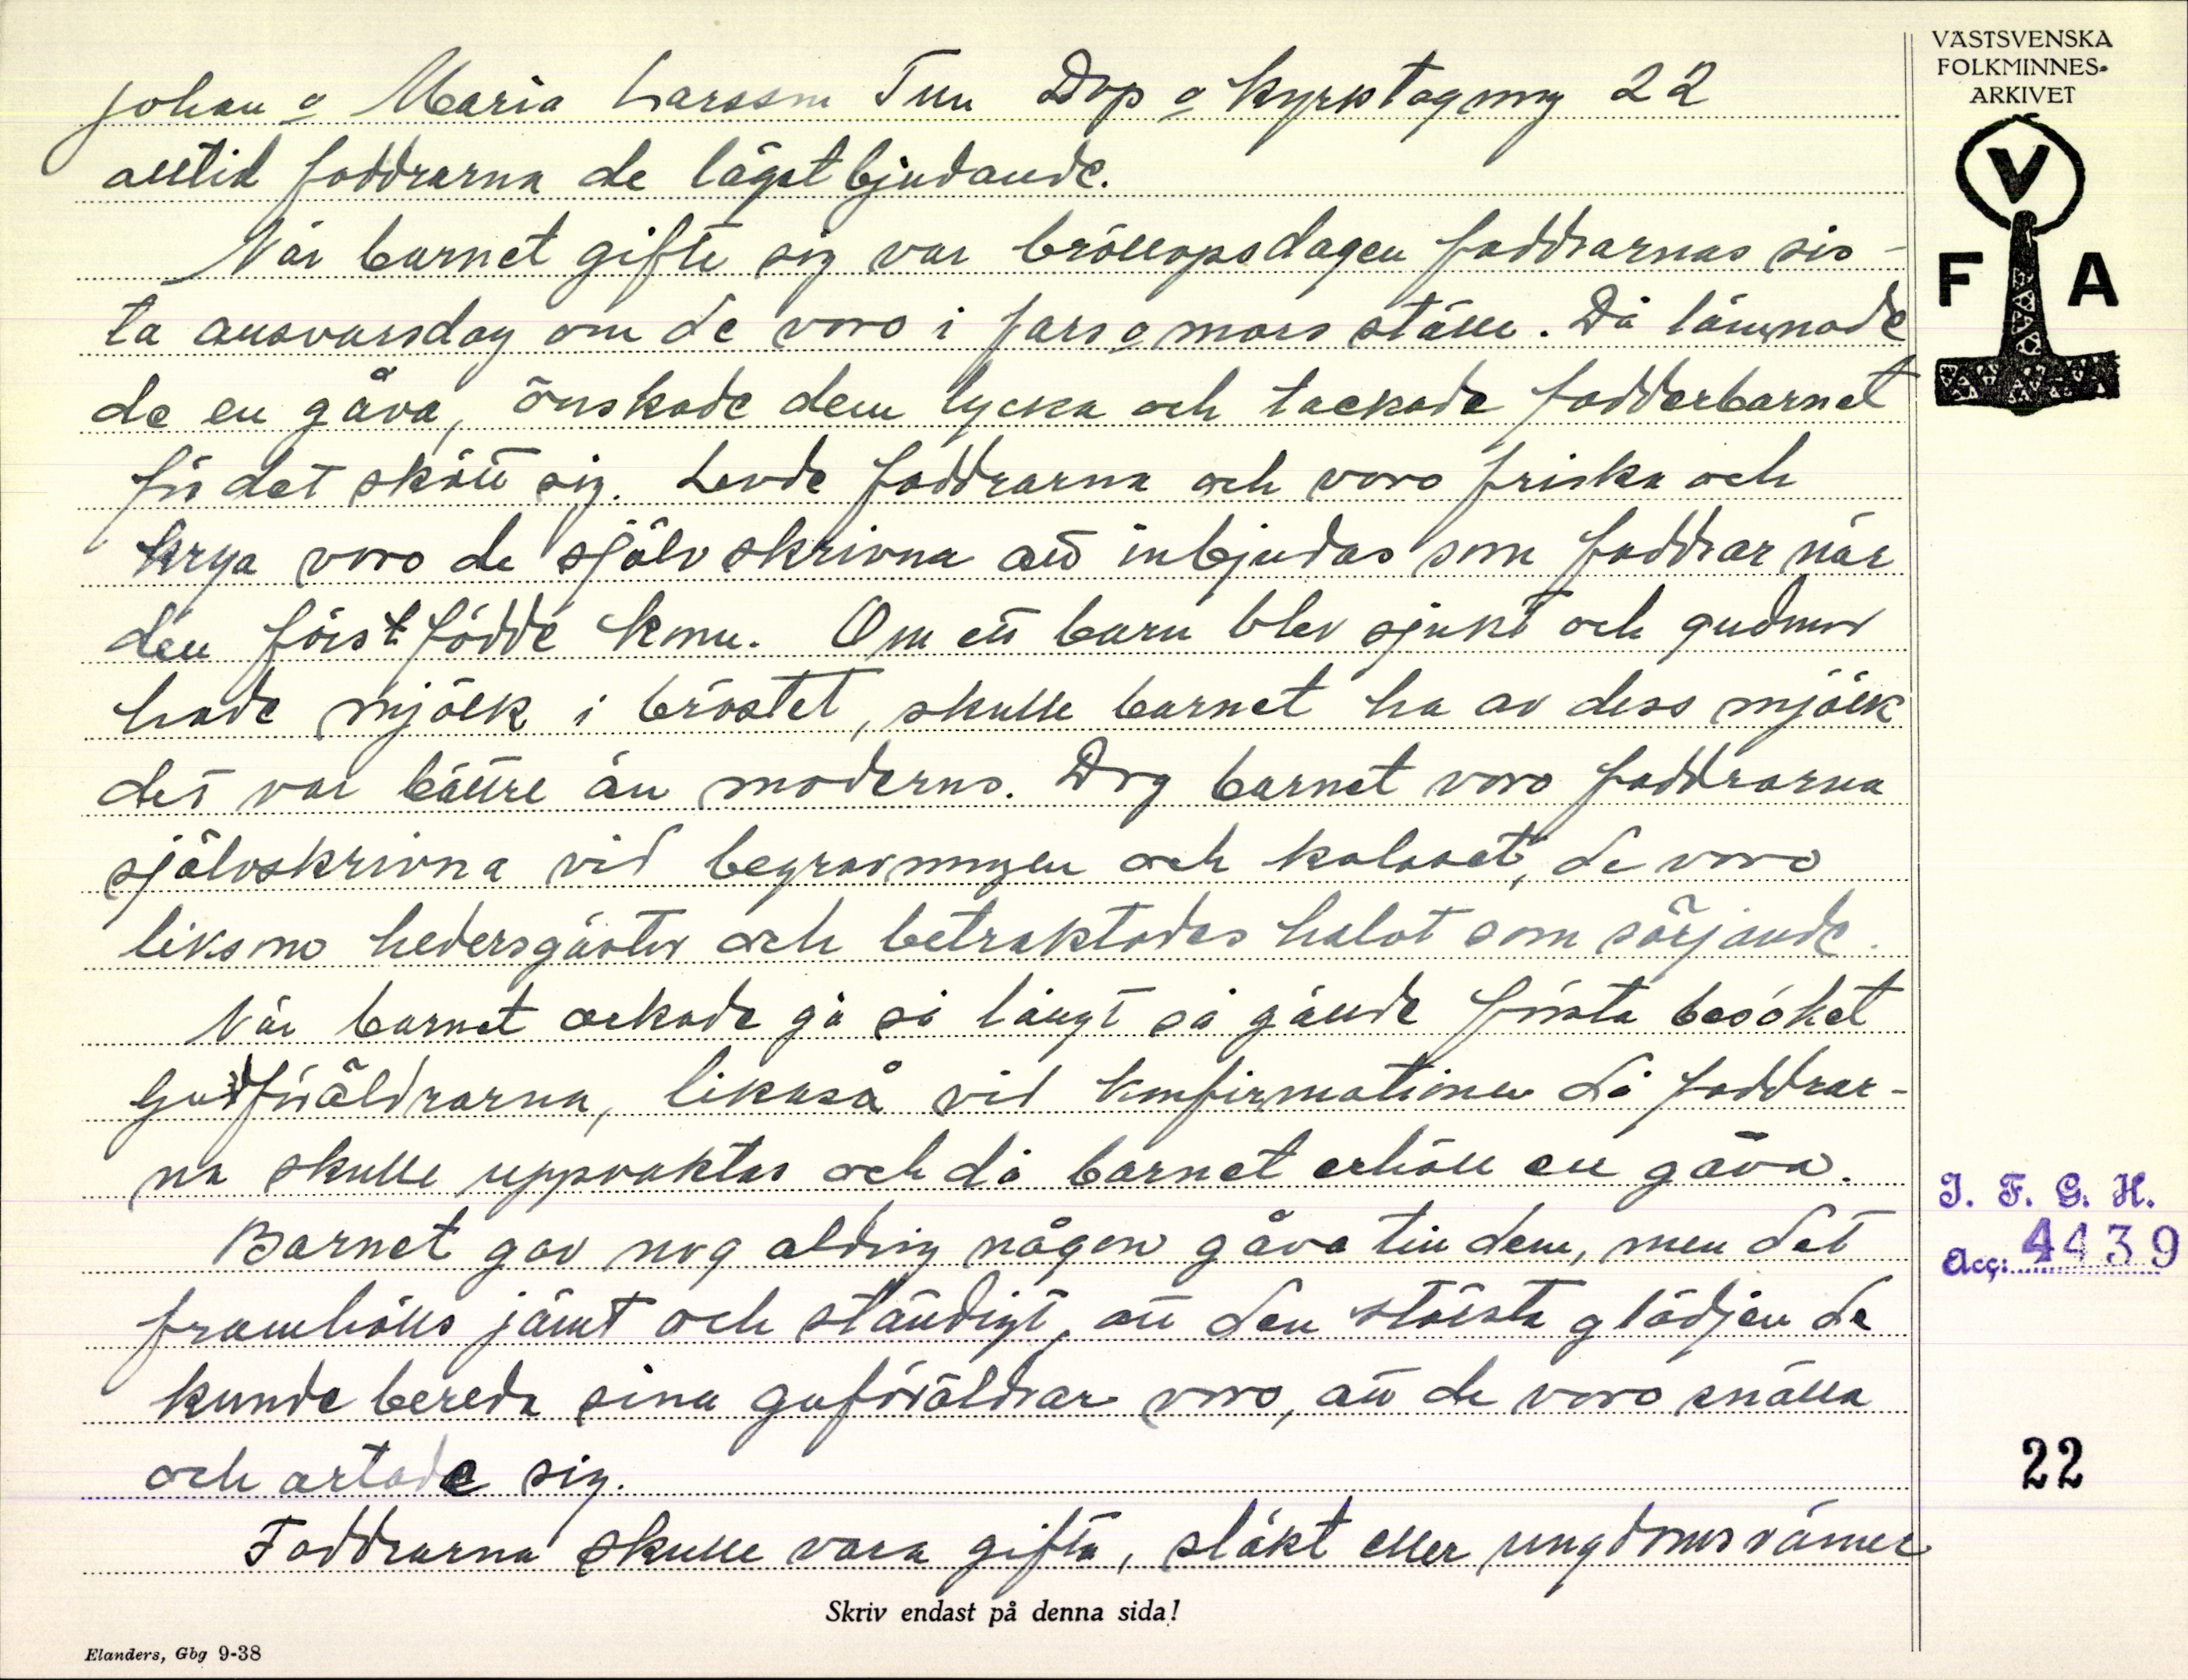 VÄSTSVENSKA
FOLKMINNES-
ARKIVET
V
F A
Johan o Maria Larsson Tun Dop o kyrktagning 22
alltid faddrarna de lägstbjudande.
När barnet gifte sig var bröllopsdagen faddrarnas sis-
ta ansvarsdag om de voro i fars o mors ställe. Då lämnade
de en gåva, önskade dem lycka och tackade fadderbarnet
för det skött sig. Levde faddrarna och voro friska och
krya voro de självskrivna att inbjudas som faddrar när
den förstfödde kom. Om ett barn blev sjukt och gudmor
hade mjölk i bröstet, skulle barnet ha av dess mjölk
det var bättre än moderns. Dog barnet voro faddrarna
självskrivna vid begravningen och kalaset, de voro
liksom hedersgäster och betraktades halvt som sörjande.
När barnet orkade gå så långt så gällde första besöket
gudföräldrarna, likaså vid konfirmationen då faddrar-
na skulle uppvaktas och då barnet erhöll en gåva.
Barnet gav nog aldrig någon gåva till dem, men det
framhölls jämt och ständigt, att den största glädjen de
kunde bereda sina guföräldrar voro, att de voro snälla
och artade sig.
Faddrarna skulle vara gifta, släkt eller ungdomsvänner
I. F. G. H.
Acc: 4439
22
Skriv endast på denna sida!
Elanders, Gbg 9-38